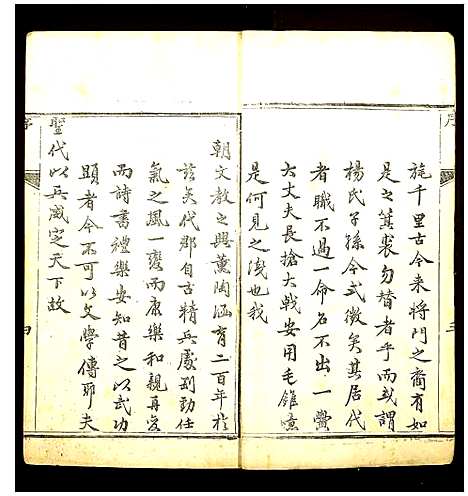 旄千里古今来將門之裔有如
是之箕裘勿替者乎而或謂
楊氏子孫今式微矣其居代
者職不過一命名不出一黌
大丈夫長搶大戟安用毛錐噫
是何見之淺也我
朝文教之興薰陶涵育二百年於
茲矣代郡自古精兵處剽勁任
氣之風一變而康樂和親再變
而詩書禮樂安知昔之以武功
顯者今不可以文學傳耶夫
聖代以兵威定天下故
序
三
序
四